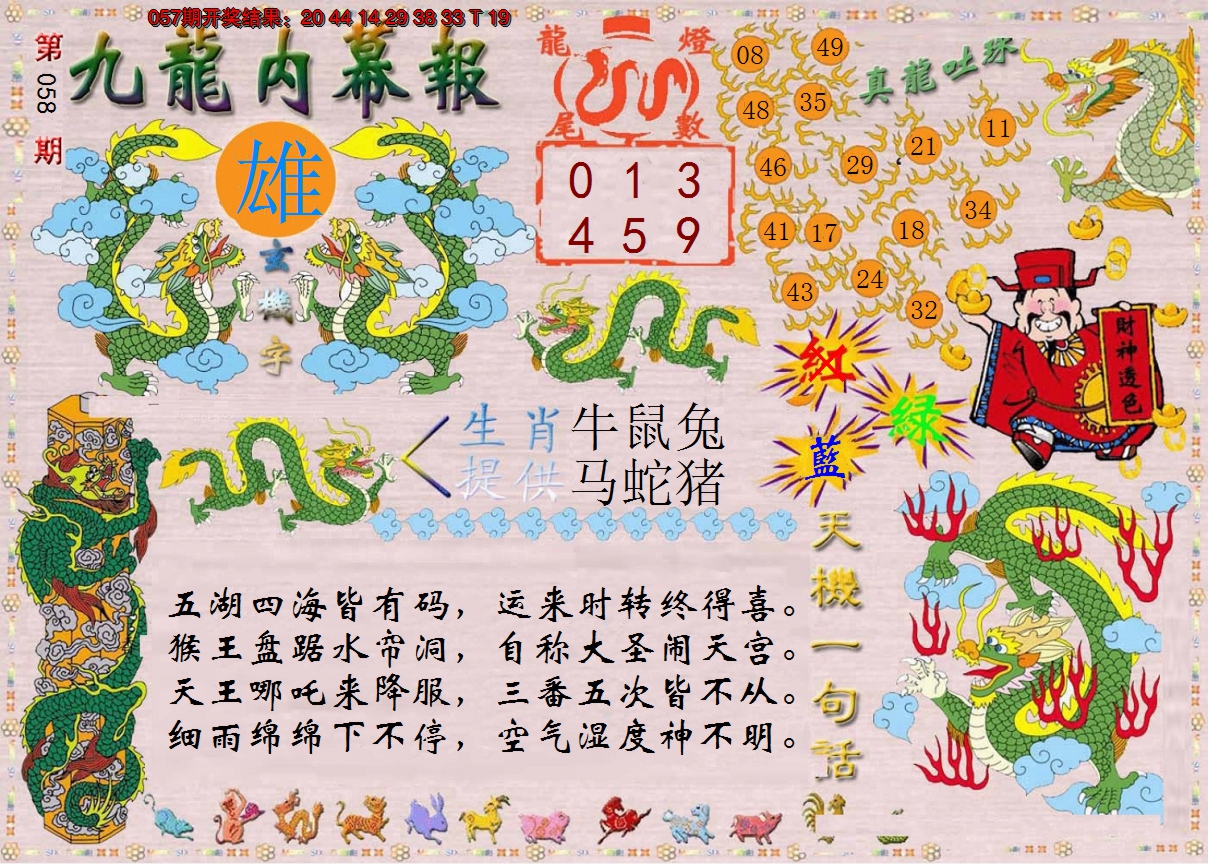 057期开奖结果：20 44 14 29 38 33 T 19
第058期
九龍内幕報
雄
玄機字
龍燈尾數
0 1 3
4 5 9
真龍吐珠
08
49
48
35
46
29
21
11
41
17
18
34
43
24
32
財神透色
紅
綠
藍
生肖提供
牛鼠兔
马蛇猪
天機一句話
五湖四海皆有码，运来时转终得喜。
猴王盘踞水帘洞，自称大圣闹天宫。
天王哪吒来降服，三番五次皆不从。
细雨绵绵下不停，空气湿度神不明。